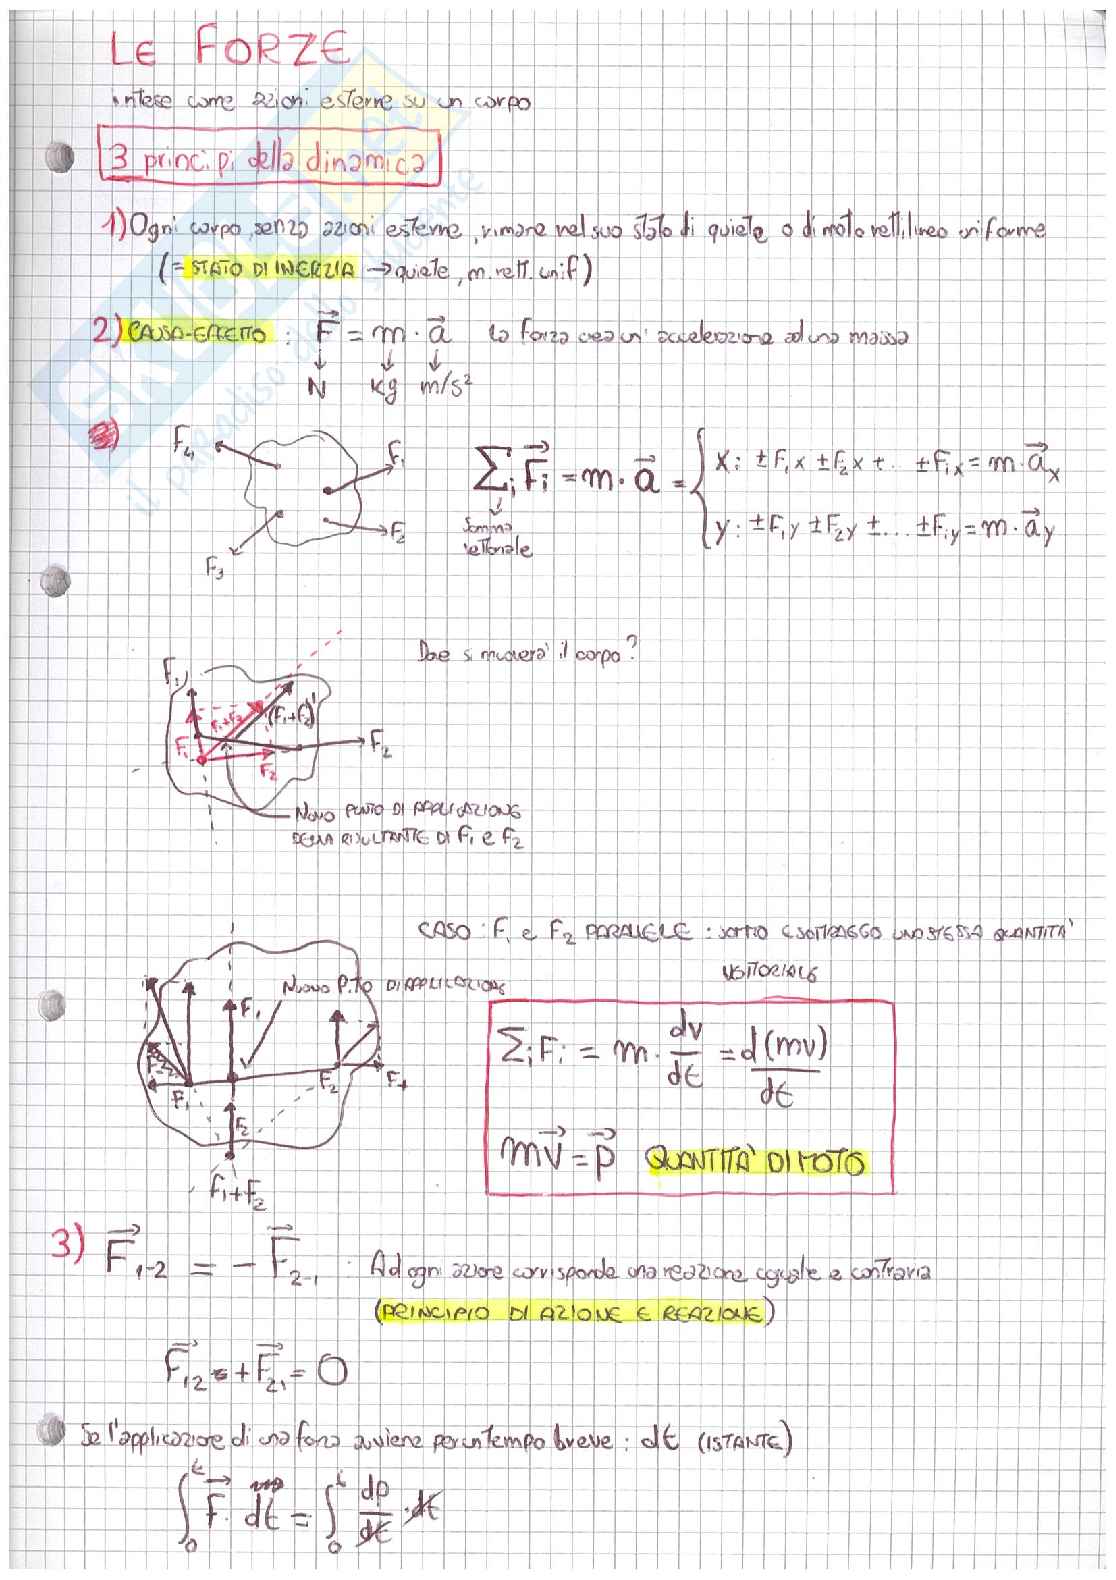 LE FORZE
intese come azioni esterne su un corpo
3 principi della dinamica
1) Ogni corpo, senza azioni esterne, rimane nel suo stato di quiete o di moto rettilineo uniforme
(= STATO DI INERZIA → quiete, m. rett. unif)
2) CAUSA-EFFETTO : F⃗ = m · a⃗ la forza crea un' accelerazione ad una massa
↓ ↓ ↓
N Kg m/s²
F₄ F₁ F₂ F₃
∑ᵢ F⃗ᵢ = m · a⃗ = { x: ±F₁x ±F₂x +.. ±Fᵢx = m · a⃗x
y: ±F₁y ±F₂y ±... ±Fᵢy = m · a⃗y
Somma
vettoriale
Dove si muoverà il corpo?
F₁ F₁ F₂ (F₁+F₂)' F₂
NUOVO PUNTO DI APPLICAZIONE
DELLA RISULTANTE DI F₁ e F₂
CASO : F₁ e F₂ PARALLELE : SOMMO E SOTTRAGGO UNA STESSA QUANTITÀ
VETTORIALE
NUOVO P.TO DI APPLICAZIONE
F₁ F₁ F₂ F₂
F₁+F₂
∑ᵢ Fᵢ = m · dv/dt = d(mv)/dt
mv⃗ = p⃗ QUANTITÀ DI MOTO
3) F⃗₁₋₂ = - F⃗₂₋₁ . Ad ogni azione corrisponde una reazione uguale e contraria
(PRINCIPIO DI AZIONE E REAZIONE)
F⃗₁₂ + F⃗₂₁ = 0
Se l'applicazione di una forza avviene per un tempo breve : dt (ISTANTE)
∫₀ᵗ F⃗ · dt = ∫₀ᵗ dp/dt · dt
SKUOLA.net
il paradiso dello studente